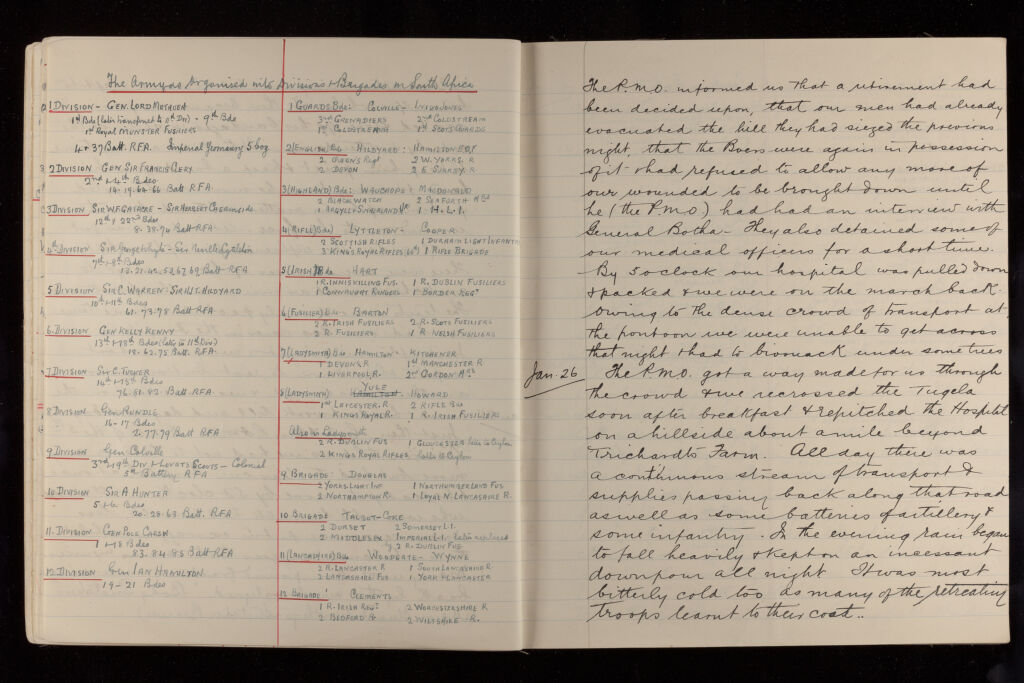 The Army as Organised into Divisions & Brigades in South Africa
1 DIVISION - GEN. LORD METHUEN
1st Bde (later transferred to 8th Div) - 9th Bde
1st Royal MUNSTER FUSILIERS
4 & 37 Batt. R.F.A. Imperial Yeomanry 5 Coy
2 DIVISION GEN SIR FRANCIS CLERY
2nd & 4th Bdes
14 - 19. 64. 66 Batt R.F.A.
3 DIVISION SIR W. GATACRE - SIR HERBERT CHERMSIDE
12th & 22nd Bdes
8. 38. 70 Batt RFA.
4th DIVISION Sir George White - Sir Neville Lyttelton
7th - 8th Bdes
13. 21. 42. 53. 67. 69 Batt RFA
5 DIVISION SIR C. WARREN - SIR H.T. HILDYARD
10th - 11th Bdes
61. 73. 78 Batt RFA.
6. DIVISION GEN KELLY KENNY
13th + 18th Bdes (latter to 11th Div)
18. 62. 75 Batt RFA.
7 DIVISION Sir C. TUCKER
14th - 15th Bdes
76. 81. 82. Batt RFA.
8 DIVISION Gen RUNDLE
16 - 17 Bdes
2. 77. 79 Batt RFA
9 DIVISION Gen Colville
3rd & 19th Div & Lovats Scouts - Colonial
5th Battery RFA
10 DIVISION SIR A HUNTER
5 & 6 Bdes
20. 28. 63 Batt. RFA.
11. DIVISION GEN POLE CAREW
1 - 18 Bdes
83. 84. 85 Batt RFA
12 DIVISION Gen IAN HAMILTON
19 - 21 Bdes
1 GUARDS Bde: COLVILLE - INIGO JONES
3rd GRENADIERS 2nd COLDSTREAM
1st COLDSTREAM 1st SCOTS GUARDS
2 (ENGLISH) Bde HILDYARD: HAMILTON E.O.F
2 QUEEN'S Regt 2 W. YORKS. R
2 DEVON 2 E SURREY R
3 (HIGHLAND) Bde: WAUCHOPE: MCDONALD
2 BLACK WATCH 2 SEAFORTH Hrs
1 ARGYLL & SUTHERLAND Hrs 1 H.L.I.
4 (RIFLE) Bde LYTTLETON - COOPER
2 SCOTTISH RIFLES 1 DURHAM LIGHT INFANTRY
3 KING'S ROYAL RIFLES (60th) 1 RIFLE BRIGADE
5 (IRISH) Bde HART
1 R. INNISKILLING FUS. 1 R. DUBLIN FUSILIERS
1 CONNAUGHT RANGERS 1 BORDER REGt
6 (FUSILIER) Bde - BARTON
2 R. IRISH FUSILIERS 2 R. SCOTS FUSILIERS
2 R. FUSILIERS 1 R WELSH FUSILIERS
7 (LADYSMITH) Bde HAMILTON - KITCHENER
1 DEVONS. R 1st MANCHESTER R
1 LIVERPOOL. R. 2nd GORDON Hrs
YULE
8 (LADYSMITH) HAMILTON HOWARD
1st LEICESTER. R 2 RIFLE Bde
1 KINGS ROYAL R. 1 R. IRISH FUSILIERS
Also in Ladysmith
2 R. DUBLIN FUS 1 GLOUCESTER later to Ceylon
2 KINGS ROYAL RIFLES later to Ceylon
9. BRIGADE. DOUGLAS
2 YORKS LIGHT INF 1 NORTHUMBERLAND FUS
2 NORTHAMPTON R. 1 LOYAL N. LANCASHIRE R.
10 BRIGADE TALBOT-COKE
2 DORSET 2 SOMERSET L.I.
2 MIDDLESEX IMPERIAL L.I. later replaced
by 2 R. DUBLIN FUS
11 (LANCASHIRE) Bde WOODGATE - WYNNE
2 R. LANCASTER R 1 SOUTH LANCASHIRE R.
2 LANCASHIRE FUS 1 YORK & LANCASTER
12 BRIGADE CLEMENTS
1 R. IRISH REGt 2 WORCESTERSHIRE R
2 BEDFORD R 2 WILTSHIRE R.
The P.M.O. informed us that a retirement had
been decided upon, that our men had already
evacuated the hill they had siezed the previous
night, that the Boers were again in possession
of it & had refused to allow any more of
our wounded to be brought down until
he (the P.M.O) had had an interview with
General Botha - They also detained some of
our medical officers for a short time.
By 5 o'clock our hospital was pulled down
& packed & we were on the march back.
Owing to the dense crowd of transport at
the pontoon we were unable to get across
that night & had to bivouack under some trees
Jan. 26 The P.M.O. got a way made for us through
the crowd & we recrossed the Tugela
soon after breakfast & repitched the Hospital
on a hillside about a mile beyond
Trichardts Farm. All day there was
a continuous stream of transport &
supplies passing back along that road
as well as some batteries of artillery &
some infantry. In the evening rain began
to fall heavily & kept on an incessant
downpour all night. It was most
bitterly cold too as many of the retreating
troops learnt to their cost..